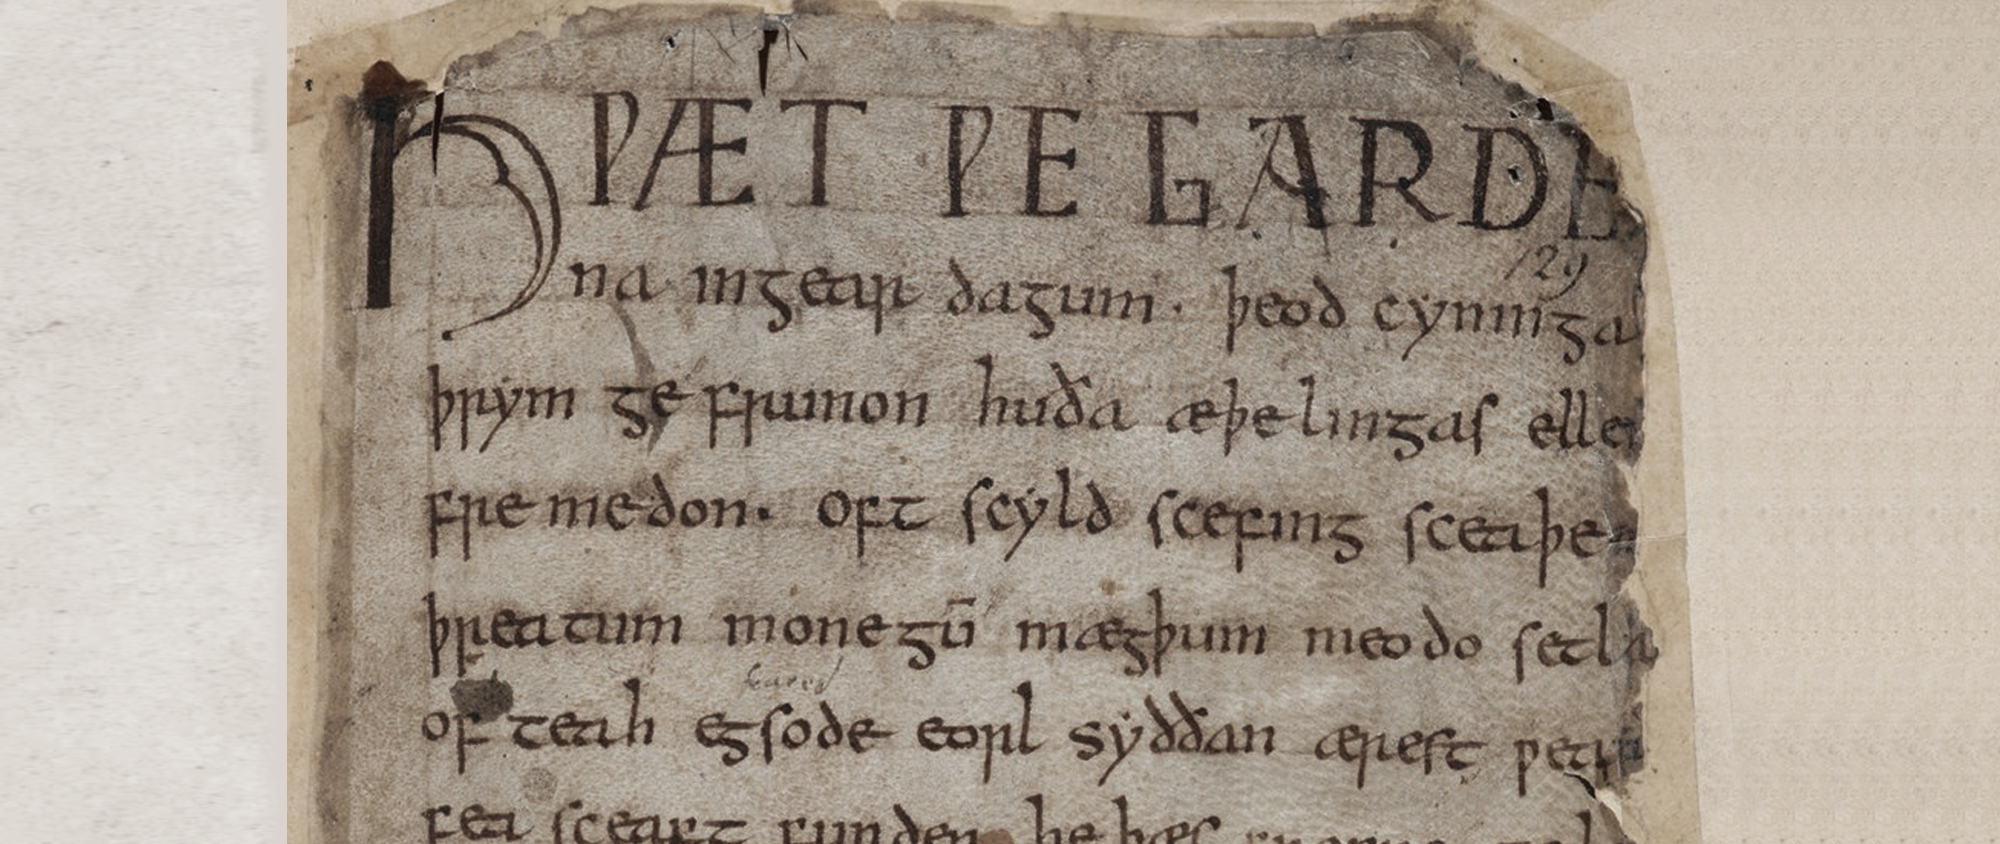 HǷÆT ǷE GARDE
129
na ingear dagum · þeod cyninga
þrym ge frunon huða æþelingas elle
fremedon. oft scyld scefing sceaþe
þreatum monegū mægþum meodo setla
of teah egsode eorl syððan ærest ƿear
fea sceaft funden he þæs